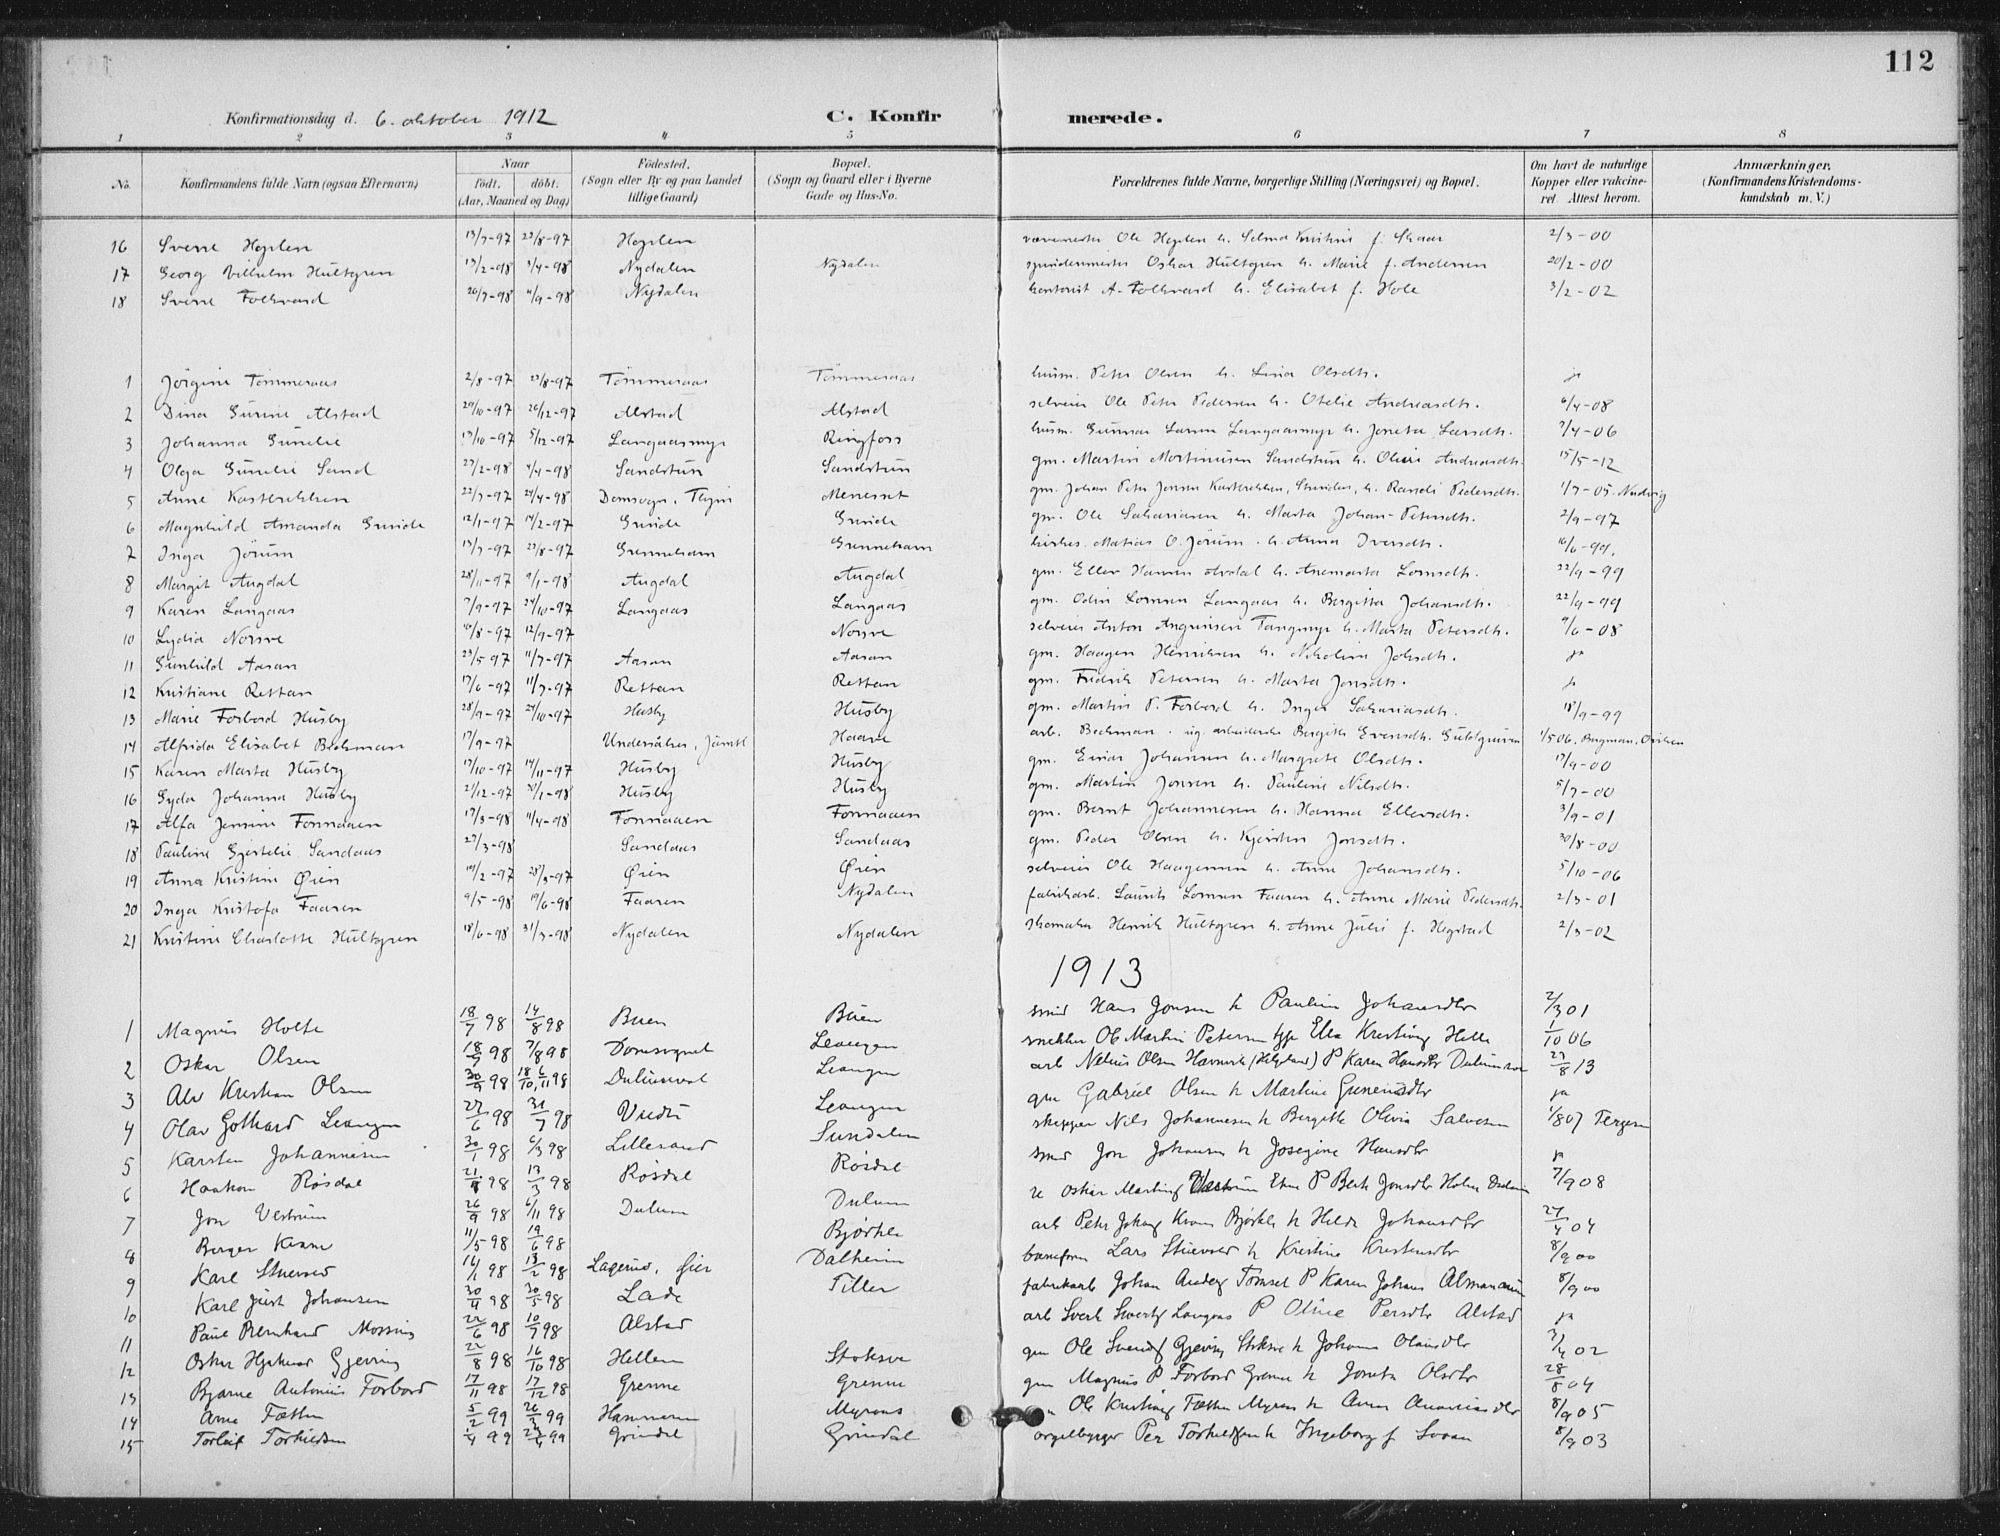 112
Konfirmationsdag d. 6. oktober 1912 C. Konfirmerede.
1 2 3 4 5 6 7 8
No. Konfirmandens fulde Navn (ogsaa Efternavn) Naar født. døbt. (Aar, Maaned og Dag) Fødested. (Sogn eller By og paa Landet tillige Gaard) Bopæl. (Sogn og Gaard eller i Byerne Gade og Hus-No. Forældrenes fulde Navne, borgerlige Stilling (Næringsvei) og Bopæl. Om havt de naturlige Kopper eller vakcineret. Attest herom. Anmærkninger. (Konfirmandens Kristendomskundskab m. V.)
16 Sverre Hegden 13/7-97 23/8-97 Hegden Ole Hegden h. Selma Kristine f. Skaar 2/3-00
17 Georg Vilhelm Hultgren 13/2-98 3/4-98 Nydalen Nydalen spindemester Oskar Hultgren h. Marie f. Andersen 20/2-00
18 Sverre Folkvard 20/7-98 11/9-98 Nydalen kontorist A. Folkvard h. Elisabet f. Hole 3/2-02
1 Jørgine Tømmeraas 2/8-97 23/8-97 Tømmeraas Tømmeraas husm. Peter Olsen h. Lina Olsdtr. ja
2 Dina Gurine Alstad 20/10-97 26/12-97 Alstad Alstad selveier Ole Peter Pedersen h. Otelie Andreasdtr. 6/4-08
3 Johanna Gunelie 13/10-97 5/12-97 Langaasmyr Ringfoss husm. Gunnar Larsen Langaasmyr h. Joneta Larsdtr. 7/4-06
4 Olga Gunelie Sand 27/2-98 4/4-98 Sandstun Sandstun gm. Martin Mortinusen Sandstun h. Andreasdtr. 15/5-12
5 Anne Kastbrekken 22/7-97 24/4-98 Domsogn, Thjm Menesset gm. Johan Peter Jensen Kastbrekken, h. Randi Pedersdtr. 1/7-05.
6 Magnhild Amanda Grinde 12/1-97 14/2-97 Grinde Grinde gm. Ole Sakariasen h. Marta Johan-Petersdtr. 2/9-97
7 Inga Jørum 13/7-97 23/8-97 Grenneham Grenneham kirkes. Matias O. Jørum h. Anna Iversdtr. 16/6-99.
8 Margit Augdal 28/11-97 9/1-98 Augdal Augdal gm. Eller Hansen Avdal h. Anemarta Lornsdtr. 22/9-99
9 Karen Langaas 7/9-97 24/10-97 Langaas Langaas gm. Odin Lornsen Langaas h. Bergitta Johansdtr. 22/9-99
10 Lydia Norsve 16/8-97 12/9-97 Norsve selveier Anton Tangmyr h. Marta Petersdtr. 9/6-08
11 Gunhild Aasan 23/5 97 11/7-97 Aasan Aasan gm. Haagen Henriksen h. Nikoline Johsdtr. ja
12 Kristiane Rettan 17/6-97 11/7-97 Rettan Rettan gm. Fridrik Petersen h. Marta Jonsdtr. ja
13 Marie Forbord Husby 28/9-97 24/10-97 Husby Husby gm. Martin P. Forbord h. Inger Sakariasdtr. 18/9-99
14 Alfrida Elisabet Beckman 17/9-97 Undersåker, Jämtl Haave arb. Beckman. ug. arbeiderske Bergitte Evensdtr. 1/5 06, Bergman,
15 Karen Marta Husby 17/10-97 14/11-97 Husby Husby gm. Einar Johansen h. Margrete Olsdtr. 17/9-00
16 Gyda Johanna Husby 21/12-97 30/1-98 Husby Husby gm. Martin Jonsen h. Pauline Nilsdtr. 5/7-00
17 Alfa Jensine Fornaaen 17/3-98 11/4-98 Fornaaen Fornaaen gm. Bernt Johannesen h. Hanna Ellersdtr. 3/9-01
18 Pauline Gjertelie Sandaas 27/3-98 Sandaas Sandaas gm. Peder Olsen h. Kjersten Jonsdtr. 30/8-00
19 Anna Kristine Øien 10/2-97 28/3-97 Øien Øien selveier Ole Haagensen h. Anne Johansdtr. 5/10-06
20 Inga Kristofa Faaren 9/5-98 19/6-98 Faaren Nydalen fabrikarb. Laurits Lornsen Faaren h. Anne Marie Pedersdtr. 2/3-01
21 Kristine Charlotte Hultgren 18/6-98 31/7-98 Nydalen Nydalen skomaker Henrik Hultgren h. Anne Julie f. Hegstad 2/3-02
1913
1 Magnus Holte 18/7 98 14/8 98 Buen Buen smed Hans Jonsen h Paulina Johansdtr 2/3 01
2 Oskar Olsen 18/7 98 7/8 98 Domsognet Leangen snekker Ole Martin Petersen Kristine Helle 1/10 06
3 Alv Kristian Olsen 30/9 98 18/10, 6/11 98 Leangen arb Nelius Olsen P Karen Hansdtr 27/8 13
4 Olav Gothard Leangen 27/6 98 31/7 98 Leangen gm Gabriel Olsen h Martine ja
5 Karsten Johannesen 30/1 98 6/3 98 Lillesand Sundalen skipper Nils Johannesen h Bergitte Olivia Salvesen 1/8 07 Tergesen
6 Haakon Røsdal 21/1 98 13/3 98 Røsdal Røsdal smed Jon Johansen h Josefine Hansdtr ja
7 Jon Vestrum 26/9 98 6/11 98 Dulum Dulum Oskar Martin Vestrum P Berit Jonsdtr 7/9 08
8 Berger Krane 11/5 98 19/6 98 Bjørkle arb Peter Johan Krane Bjørkle h Helde Johansdtr 27/4 04
9 Karl Stuevold 16/1 98 13/2 98 Dalheim baneform Lars Stuevold h Kristine Kristensdtr 8/9 00
10 Karl Just Johansen 30/4 98 30/5 98 Lade Tiller fabrikarb Johan P Karen Johans 8/9 00
11 Paul Bernhard Mossing 22/6 98 10/7 98 Alstad arb P Oline Persdtr Alstad ja
12 Oskar Hjalmar Gjeving 22/8 98 16/10 98 Hellem Stokke gm Ole Gjeving h Johanna 3/4 02
13 Bjarne Antonius Forbord 17/11 98 17/12 98 Grenne Grenne gm Magnus P Forbord Grenne h Joneta Olsdtr 28/8 04
14 Arne Fætten 5/2 99 26/3 99 Hammeren Myraas " Ole Fætten Myraas h Anna 8/9 05
15 Torleif Torkildsen 2/4 99 23/4 99 Grindal Grindal orgelbygger Per Torkildsen h Ingeborg f 8/9 03